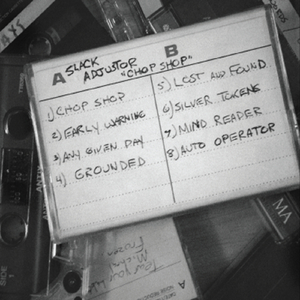 A
SLACK
ADJUSTOR
"CHOP SHOP"
1) CHOP SHOP
2) EARLY WARNING
3) ANY GIVEN DAY
4) GROUNDED
B
5) LOST AND FOUND
6) SILVER TOKENS
7) MIND READER
8) AUTO OPERATOR